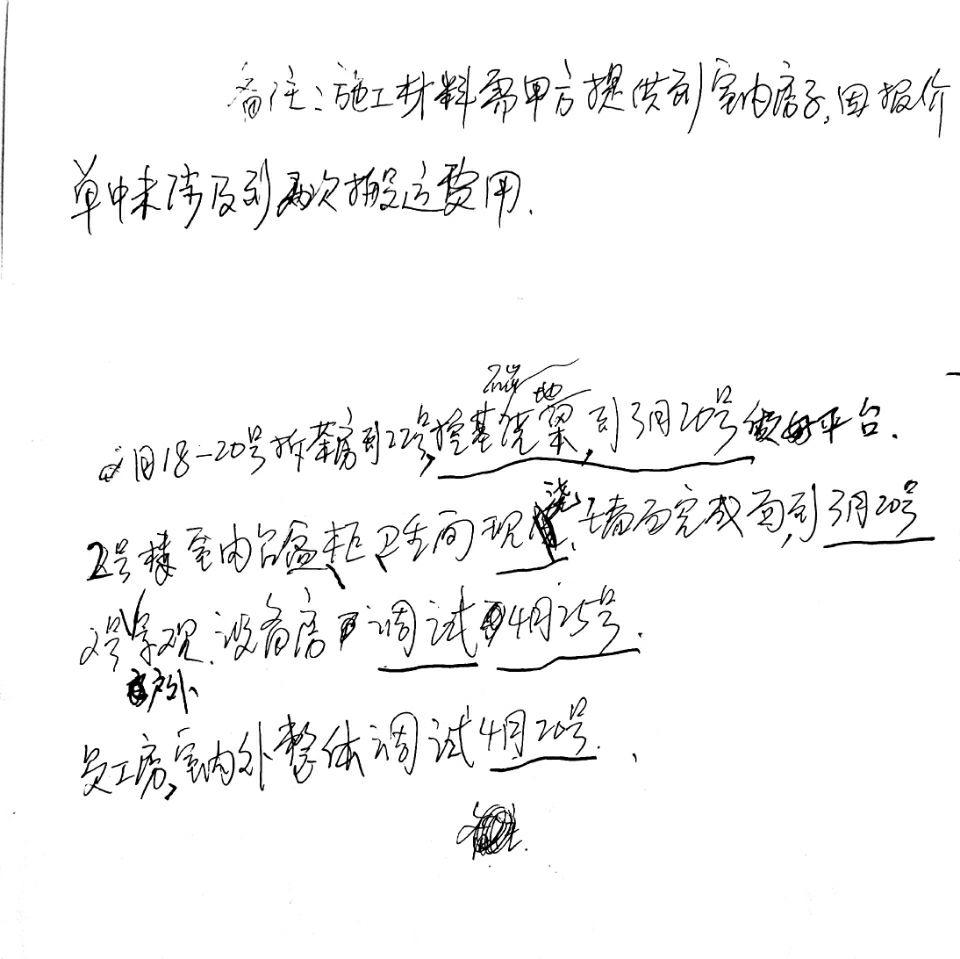 备注:施工材料需甲方提供到室内房子,因报价
单中未涉及到两次搬运费用.
地
月18-20号拆茶房到22号,挖基浇梁,到3月20号做好平台.
2号楼室内台盆柜卫生间现浇,墙面完成面,到3月20号
2号景观.设备房 调试 4月25号.
户外
员工房,室内外整体调试4月20号.